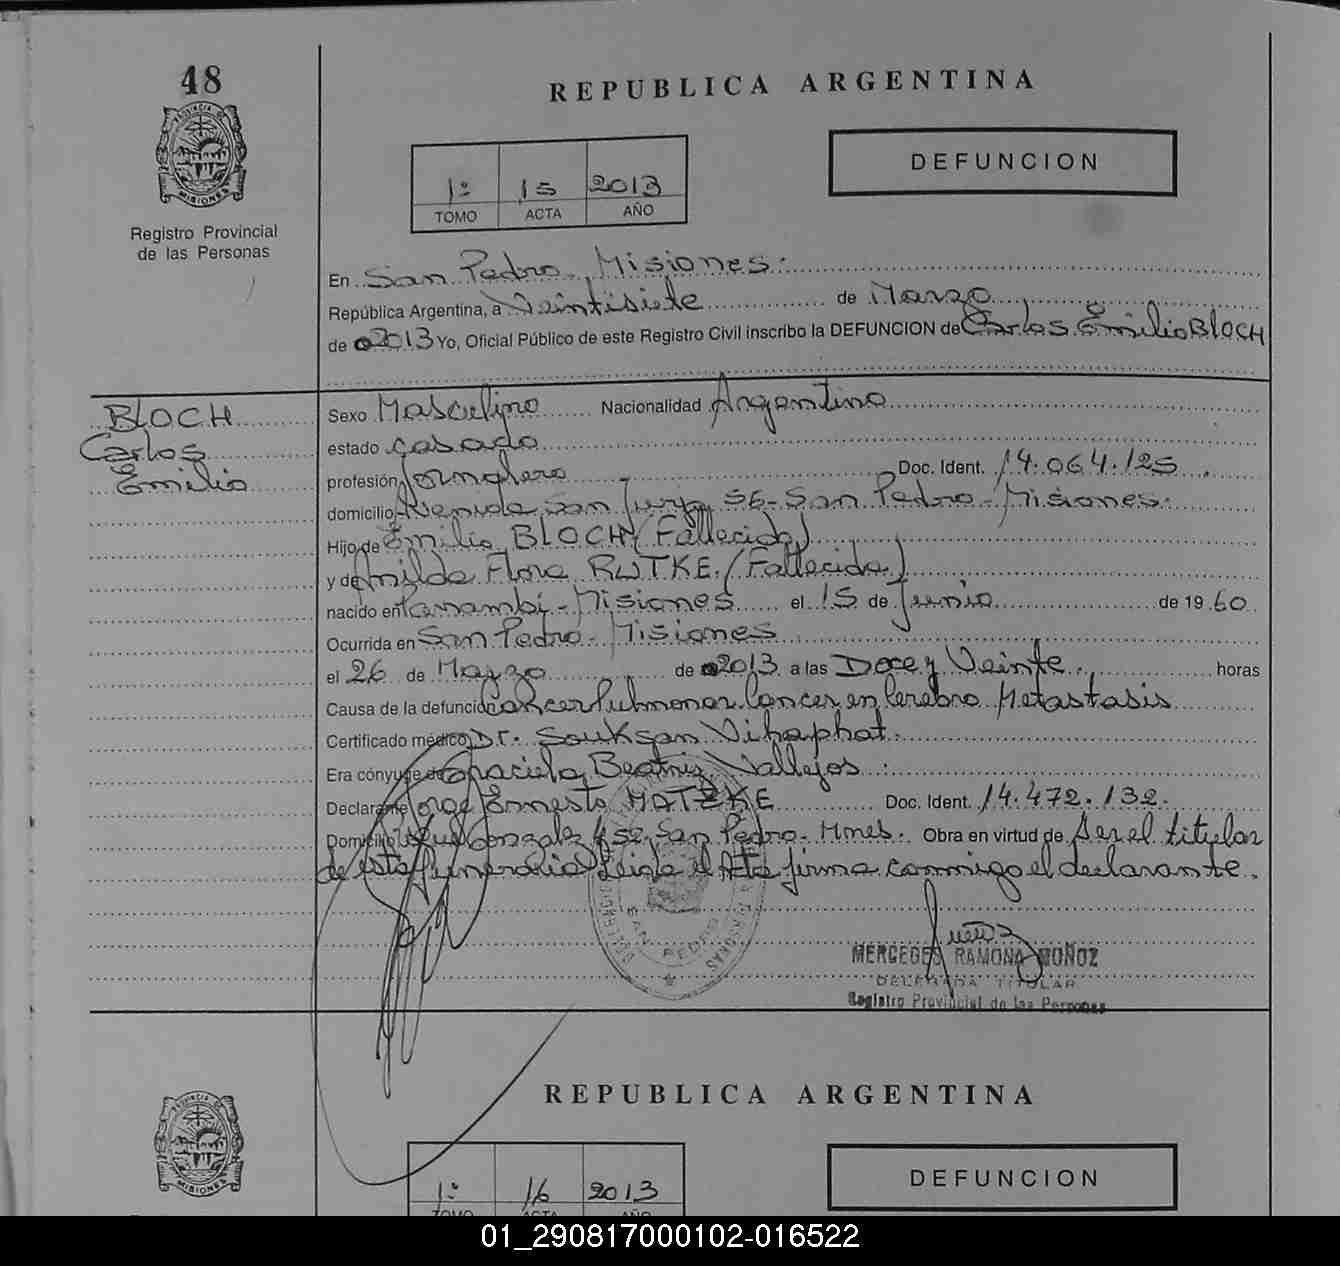 48
REPUBLICA ARGENTINA
DEFUNCION
1º 15 2013
TOMO ACTA AÑO
Registro Provincial
de las Personas
En San Pedro, Misiones.
República Argentina, a Veintisiete de Marzo
de 2013 Yo, Oficial Público de este Registro Civil inscribo la DEFUNCION de Carlos Emilio BLOCH
BLOCH
Carlos
Emilio
Sexo Masculino Nacionalidad Argentino
estado casado
profesión Jornalero Doc. Ident. 14.064.125
domicilio Avenida San 56- San Pedro - Misiones.
Hijo de Emilio BLOCH (Fallecido)
y de Flora RUTKE (Fallecida)
nacido en Panambí - Misiones el 15 de Junio de 1960
Ocurrida en San Pedro - Misiones
el 26 de Marzo de 2013 a las Doce y Veinte. horas
Causa de la defunción Cáncer Pulmonar Cancer en Cerebro Metastasis
Certificado médico Dr. Souksan Vihaphat.
Era cónyuge de Graciela Beatriz Vallejos.
Declarante Jorge Ernesto MATZKE Doc. Ident. 14.472.132.
Domicilio Gonzalez 452 San Pedro- Mnes. Obra en virtud de Ser el titular
de esta Funeraria Leida el Acta firma conmigo el declarante.
SAN PEDRO
MERCEDES RAMONA MUÑOZ
DELEGADA TITULAR
Registro Provincial de las Personas
REPUBLICA ARGENTINA
DEFUNCION
1º 16 2013
TOMO ACTA AÑO
01_290817000102-016522